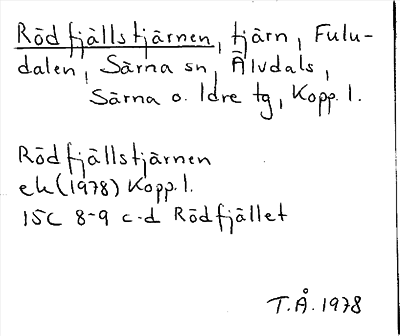 Rödfjällstjärnen, tjärn, Fulu-
dalen, Särna sn, Älvdals,
Särna o. Idre tg, Kopp. l.
Rödfjällstjärnen
ek (1978) Kopp. l.
15C 8-9 c-d Rödfjället
T.Å. 1978